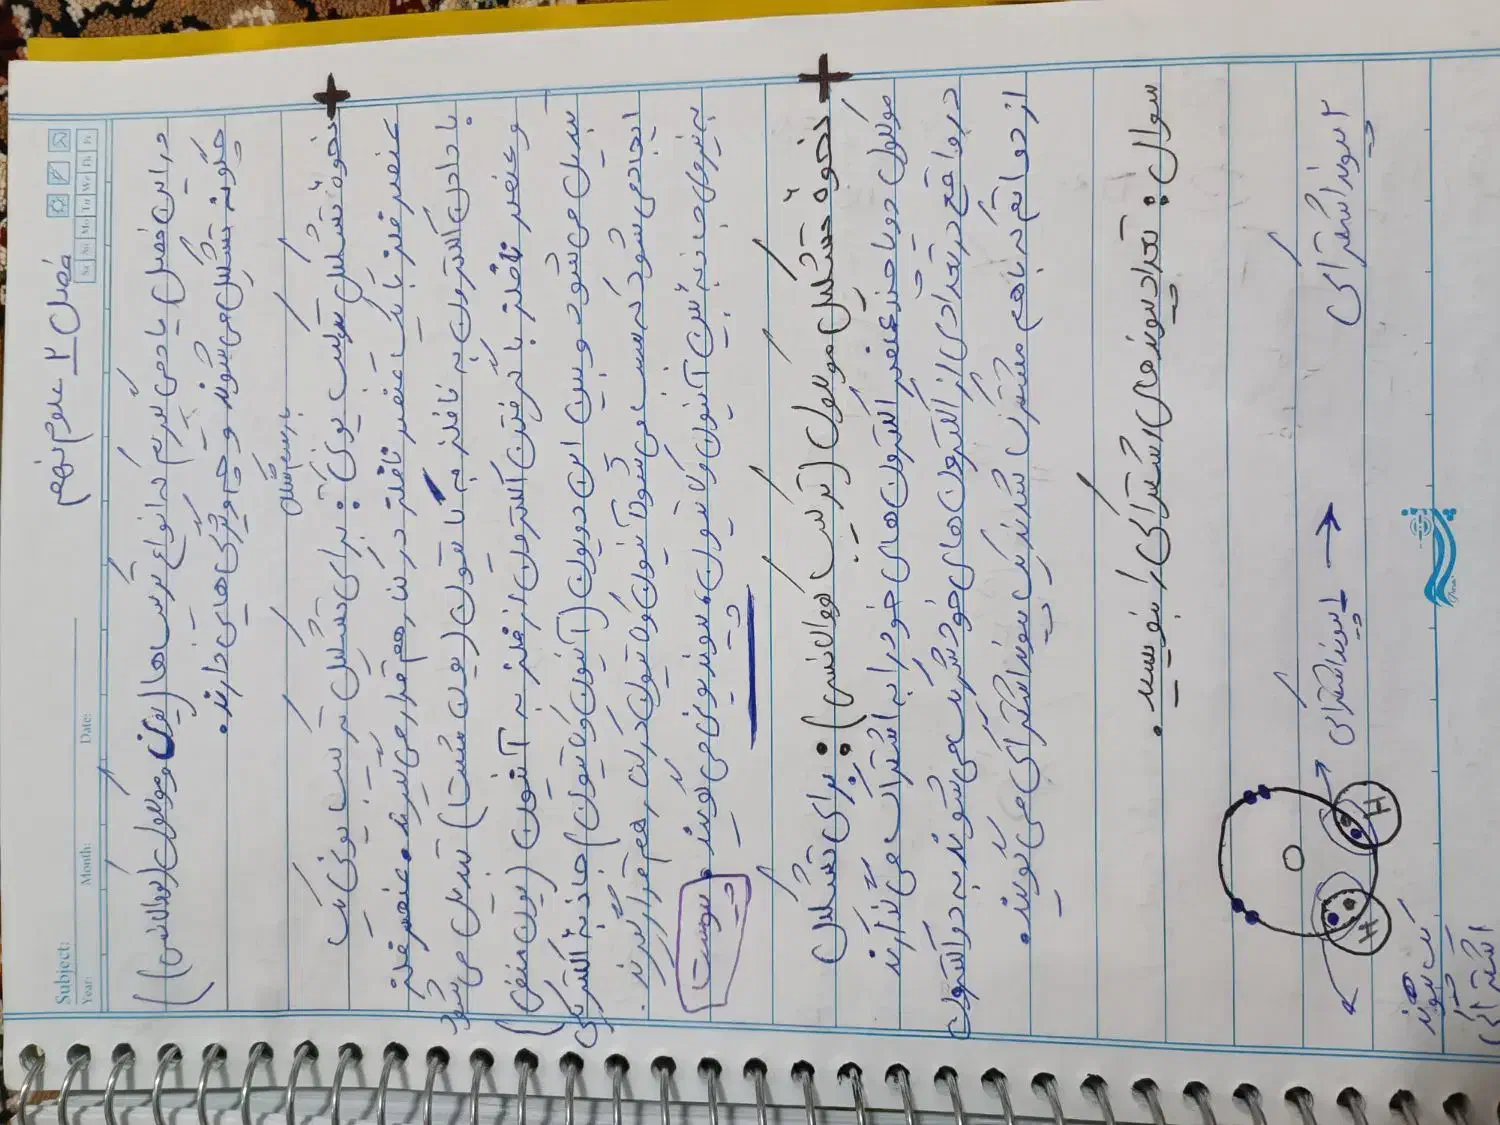 Subject:
Year: Month: Date:
Sa Su Mo Tu We Th Fr
فصل ۲ علوم نهم
در این فصل یاد می گیریم که انواع ترکیب ها (یونی و مولکولی (کووالانسی))
چگونه تشکیل می شوند و چه ویژگی هایی دارند.
بار مسیم شکل
+ نحوه تشکیل ترکیب یونی: برای تشکیل ترکیب یونی یک
عنصر فلز با یک عنصر نافلز در کنار هم قرار می گیرند. عنصر فلز
با دادن الکترون به نافلز به کاتیون (یون مثبت) تبدیل می شود
و عنصر نافلز با گرفتن الکترون از فلز به آنیون (یون منفی)
تبدیل می شود و بین این دو یون (آنیون و کاتیون) جاذبه الکتریکی
ایجاد می شود که سبب می شود آنیون و کاتیون در کنار هم قرار گیرند.
به نیروی جاذبه بین آنیون و کاتیون، پیوند یونی می گویند.
+ نحوه تشکیل مولکول (ترکیب کووالانسی): برای تشکیل
مولکول دو یا چند عنصر الکترون های خود را به اشتراک می گذارند
در واقع در تعدادی از الکترون های خود شریک می شوند به دو الکترون
از دو اتم که با هم مشترک شدند یک پیوند اشتراکی می گویند.
سوال: تعداد پیوند های اشتراکی را بنویسید.
O
H
H
پیوند اشتراکی
یک پیوند
اشتراکی
۲ پیوند اشتراکی